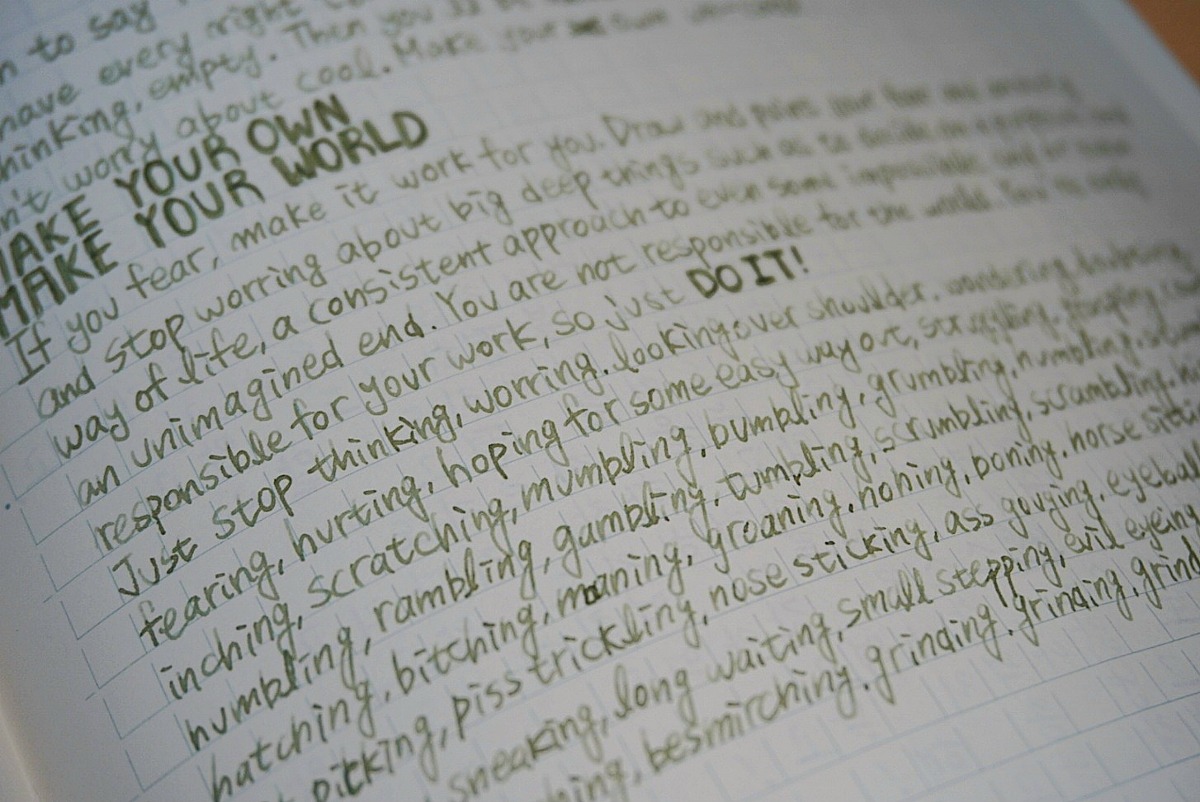 to say
have every right
thinking, empty. Then you
worry about cool. Make your own
MAKE YOUR OWN
MAKE YOUR WORLD
If you fear, make it work for you. Draw and paint your fear and anxiety
and stop worring about big deep things such as to decide on a purpose and
way of life, a consistent approach to even some impossible end or even
an unimagined end. You are not responsible for the world. You are only
responsible for your work, so just DO IT!
Just stop thinking, worring. looking over shoulder. wondering. doubting
fearing, hurting, hoping for some easy way out, struggling. grasping
inching, scratching, mumbling, bumbling, grumbling, humbling,
humbling, rambling, gambling, tumbling, scrumbling, scrambling,
hatching, bitching, moaning, groaning, honing, boning, horse
picking, piss trickling, nose sticking, ass gouging, eyeball
sneaking, long waiting, small stepping, evil eyeing
besmirching. grinding. grinding. grind